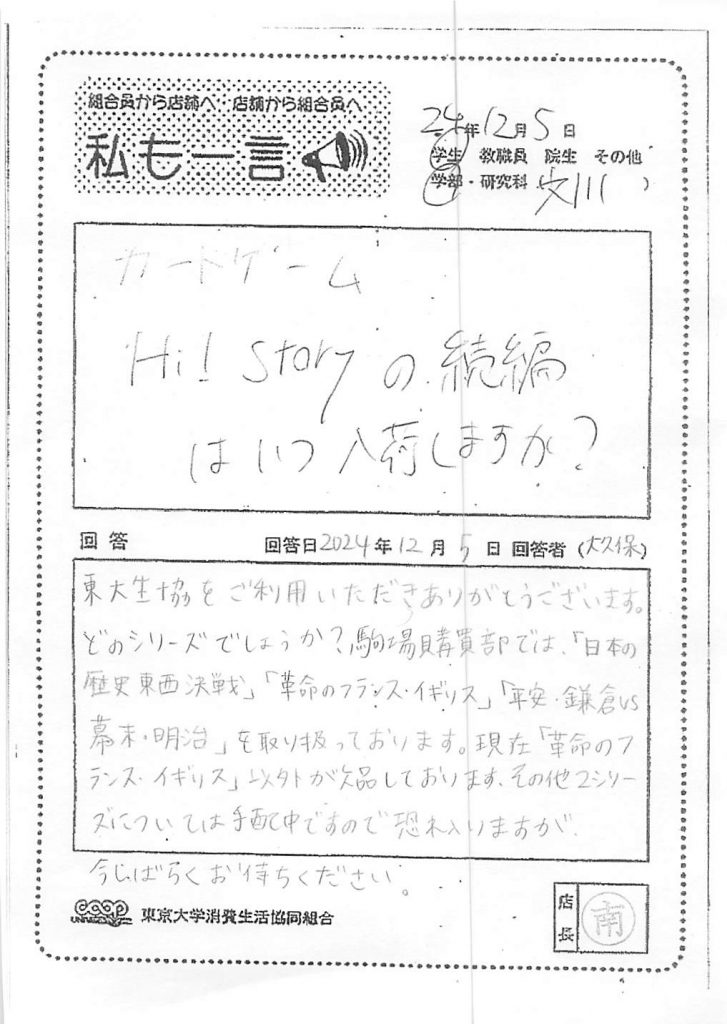 組合員から店舗へ 店舗から組合員へ
私も一言
24年12月5日
学生 教職員 院生 その他
学部・研究科 文III )
カードゲーム
Hi! Storyの続編
はいつ入荷しますか?
回答 回答日2024年12月5日 回答者(大久保)
東大生協をご利用いただきありがとうございます。
どのシリーズでしょうか?駒場購買部では、「日本の
歴史東西決戦」「革命のフランス・イギリス」「平安・鎌倉vs
幕末・明治」を取り扱っております。現在「革命のフ
ランス・イギリス」以外が欠品しております、その他2シリー
ズについては手配中ですので恐れ入りますが
今しばらくお待ちください。
coop
東京大学消費生活協同組合
店長
南